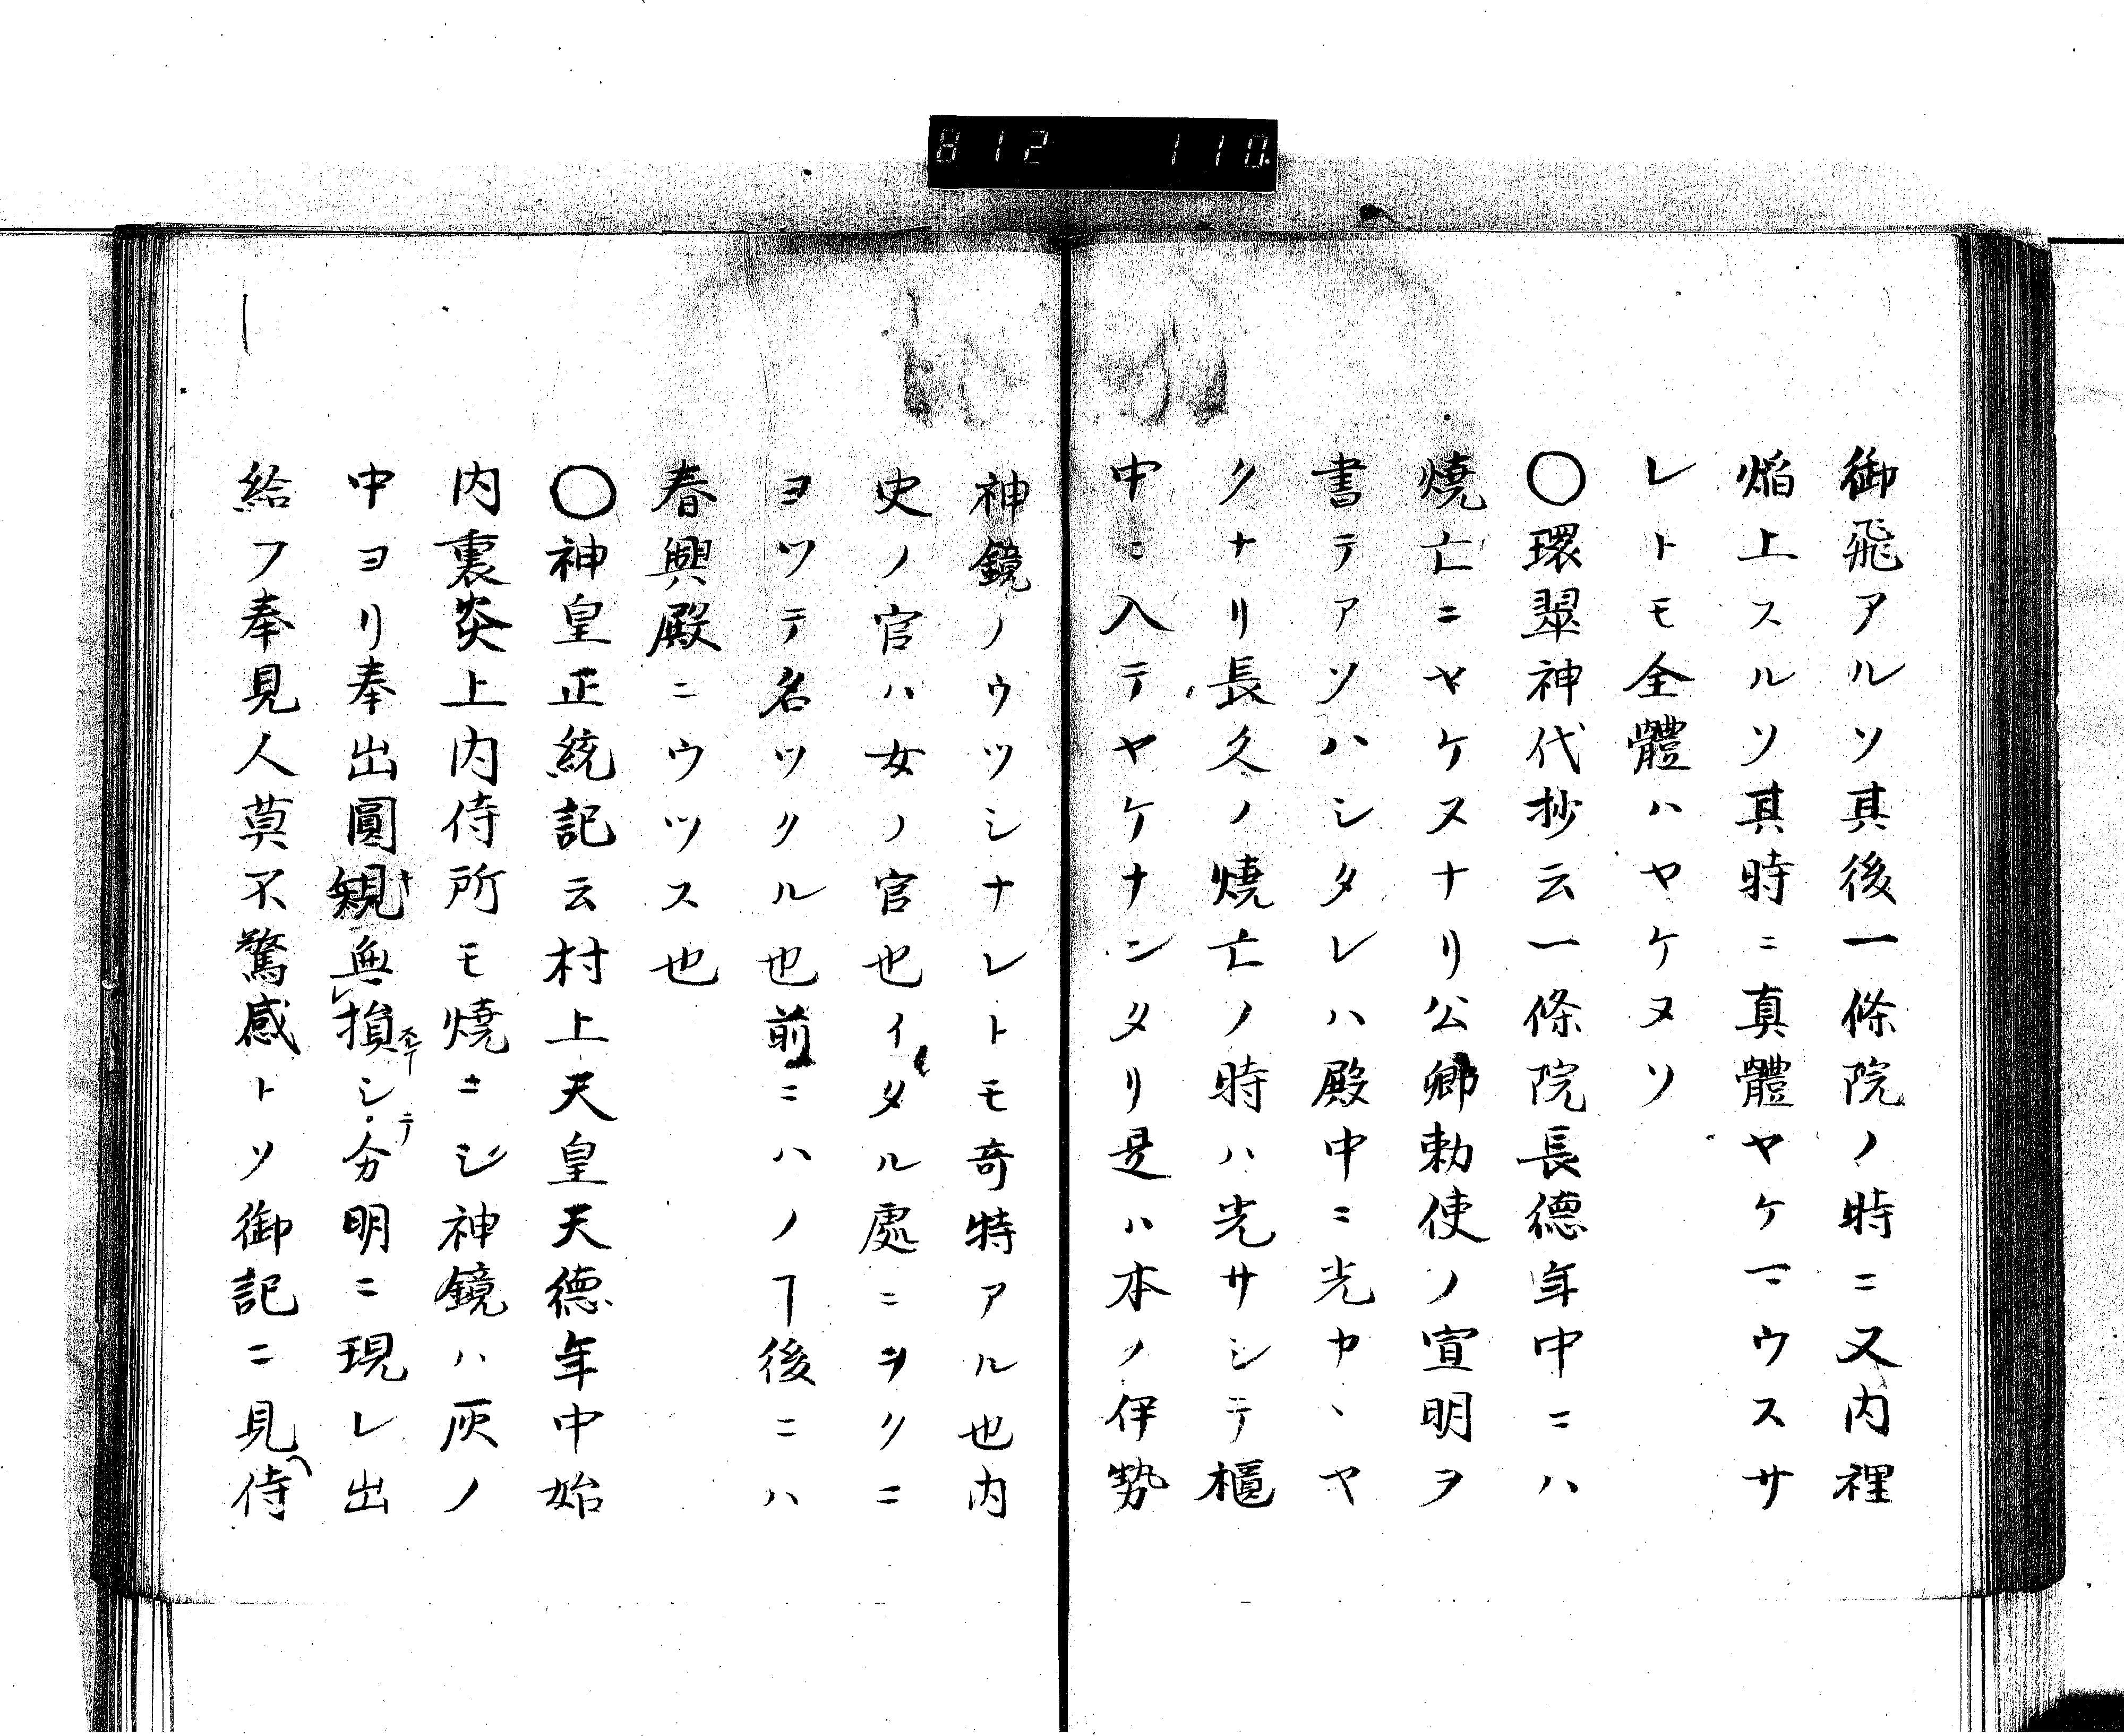 812 110
御飛アルソ其後一條院ノ時ニ又内裡
焔上スルソ其時ニ真體ヤケマウスサ
レトモ全體ハヤケヌソ
○環翠神代抄云一條院長德年中ニハ
燒亡ニヤケヌナリ公卿勅使ノ宣明ヲ
書テアソハシタレハ殿中ニ光カヽヤ
クナリ長久ノ燒亡ノ時ハ光サシテ櫃
中ニ入テヤケナンタリ是ハ本ノ伊勢
神鏡ノウツシナレトモ奇特アル也内
史ノ官ハ女ノ官也イタル處ニヲクニ
ヨツテ名ツクル也前ニハノヿ後ニハ
春興殿ニウツス也
○神皇正統記云村上天皇天德年中始
内裏炎上内侍所モ燒キシ神鏡ハ灰ノ
中ヨリ奉出圓規無損シテ分明ニ現レ出
給フ奉見人莫不驚感トソ御記ニ見ヘ侍